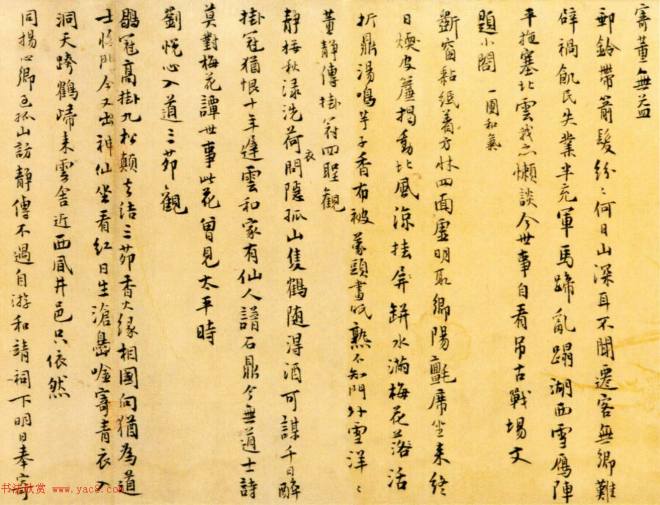 寄董無益
郵鈴帶箭髮紛〻何日山深耳不聞遷客無鄉難
辟禍飢民失業半充軍馬蹄亂蹋湖西雪鴈陣
平拖塞北雲我亦懶談今世事自看吊古戰場文
題小閣 一團和氣
斷窗黏紙着方牀四面虛明取鄉陽氈席坐來終
日煗皮簾揭動北風涼挂屏缾水滿梅花落活
折鼎湯鳴芋子香布被蒙頭晝眠熟不知門外雪洋〻
董靜傳掛冠四聖觀
靜梅秋渌洗荷衣問隱孤山隻鶴随淂酒可謀千日醉
掛冠猶恨十年遲雲和家有仙人譜石鼎今無道士詩
莫對梅花譚世事此花曽見太平時
劉悦心入道三茆觀
鶡冠高掛九松顛去結三茆香火緣相國向猶為道
士將門今又出神仙坐看紅日生滄嶴唫寄青衣入
洞天跨鶴歸来雲舎近西風井邑只依然
同揚心卿色孤山訪靜傳不遇自游和靖祠下明日奉寄
书法欣赏 www.yac8.com